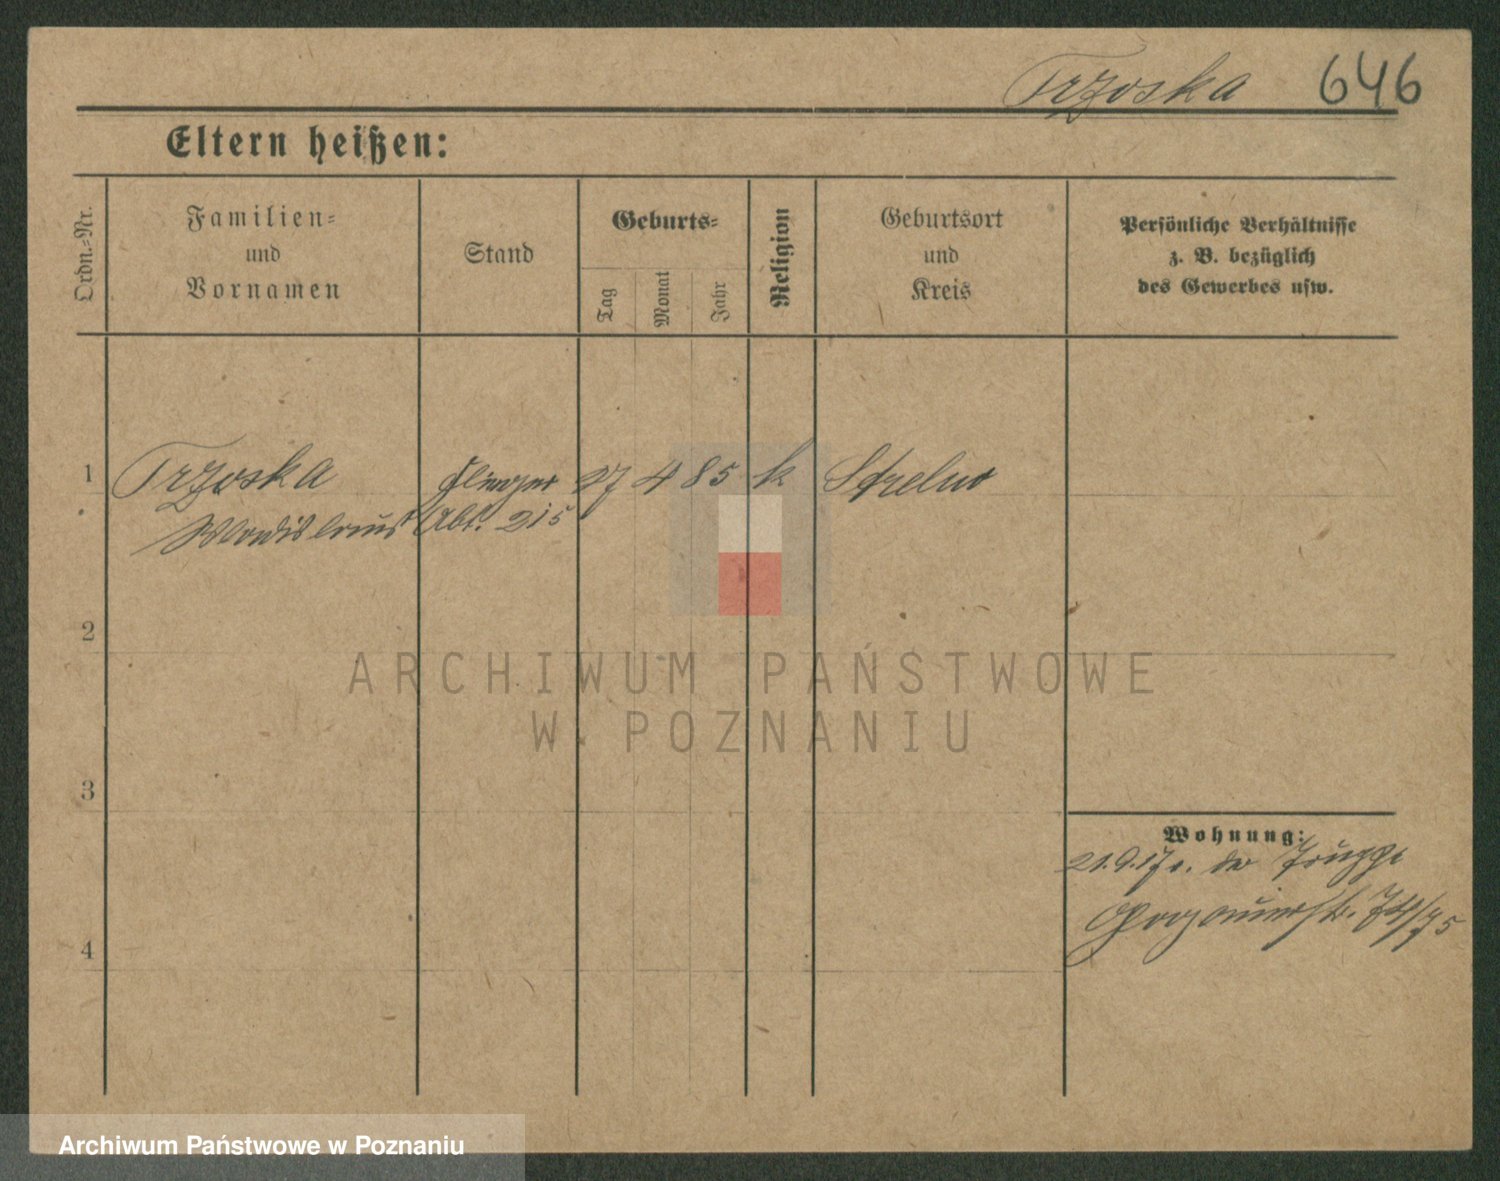 Trzoska 646
Eltern heißen:
Ordn.-Nr.
Familien-
und
Vornamen
Stand
Geburts-
Tag
Monat
Jahr
Religion
Geburtsort
und
Kreis
Persönliche Verhältnisse
z. B. bezüglich
des Gewerbes usw.
1 Trzoska Flieger 27 4 85 k Strelno
Wladislaus Abt. 215
2
3
4
Wohnung:
21.9.17 v. der Truppe
74/75
ARCHIWUM PAŃSTWOWE
W POZNANIU
Archiwum Państwowe w Poznaniu